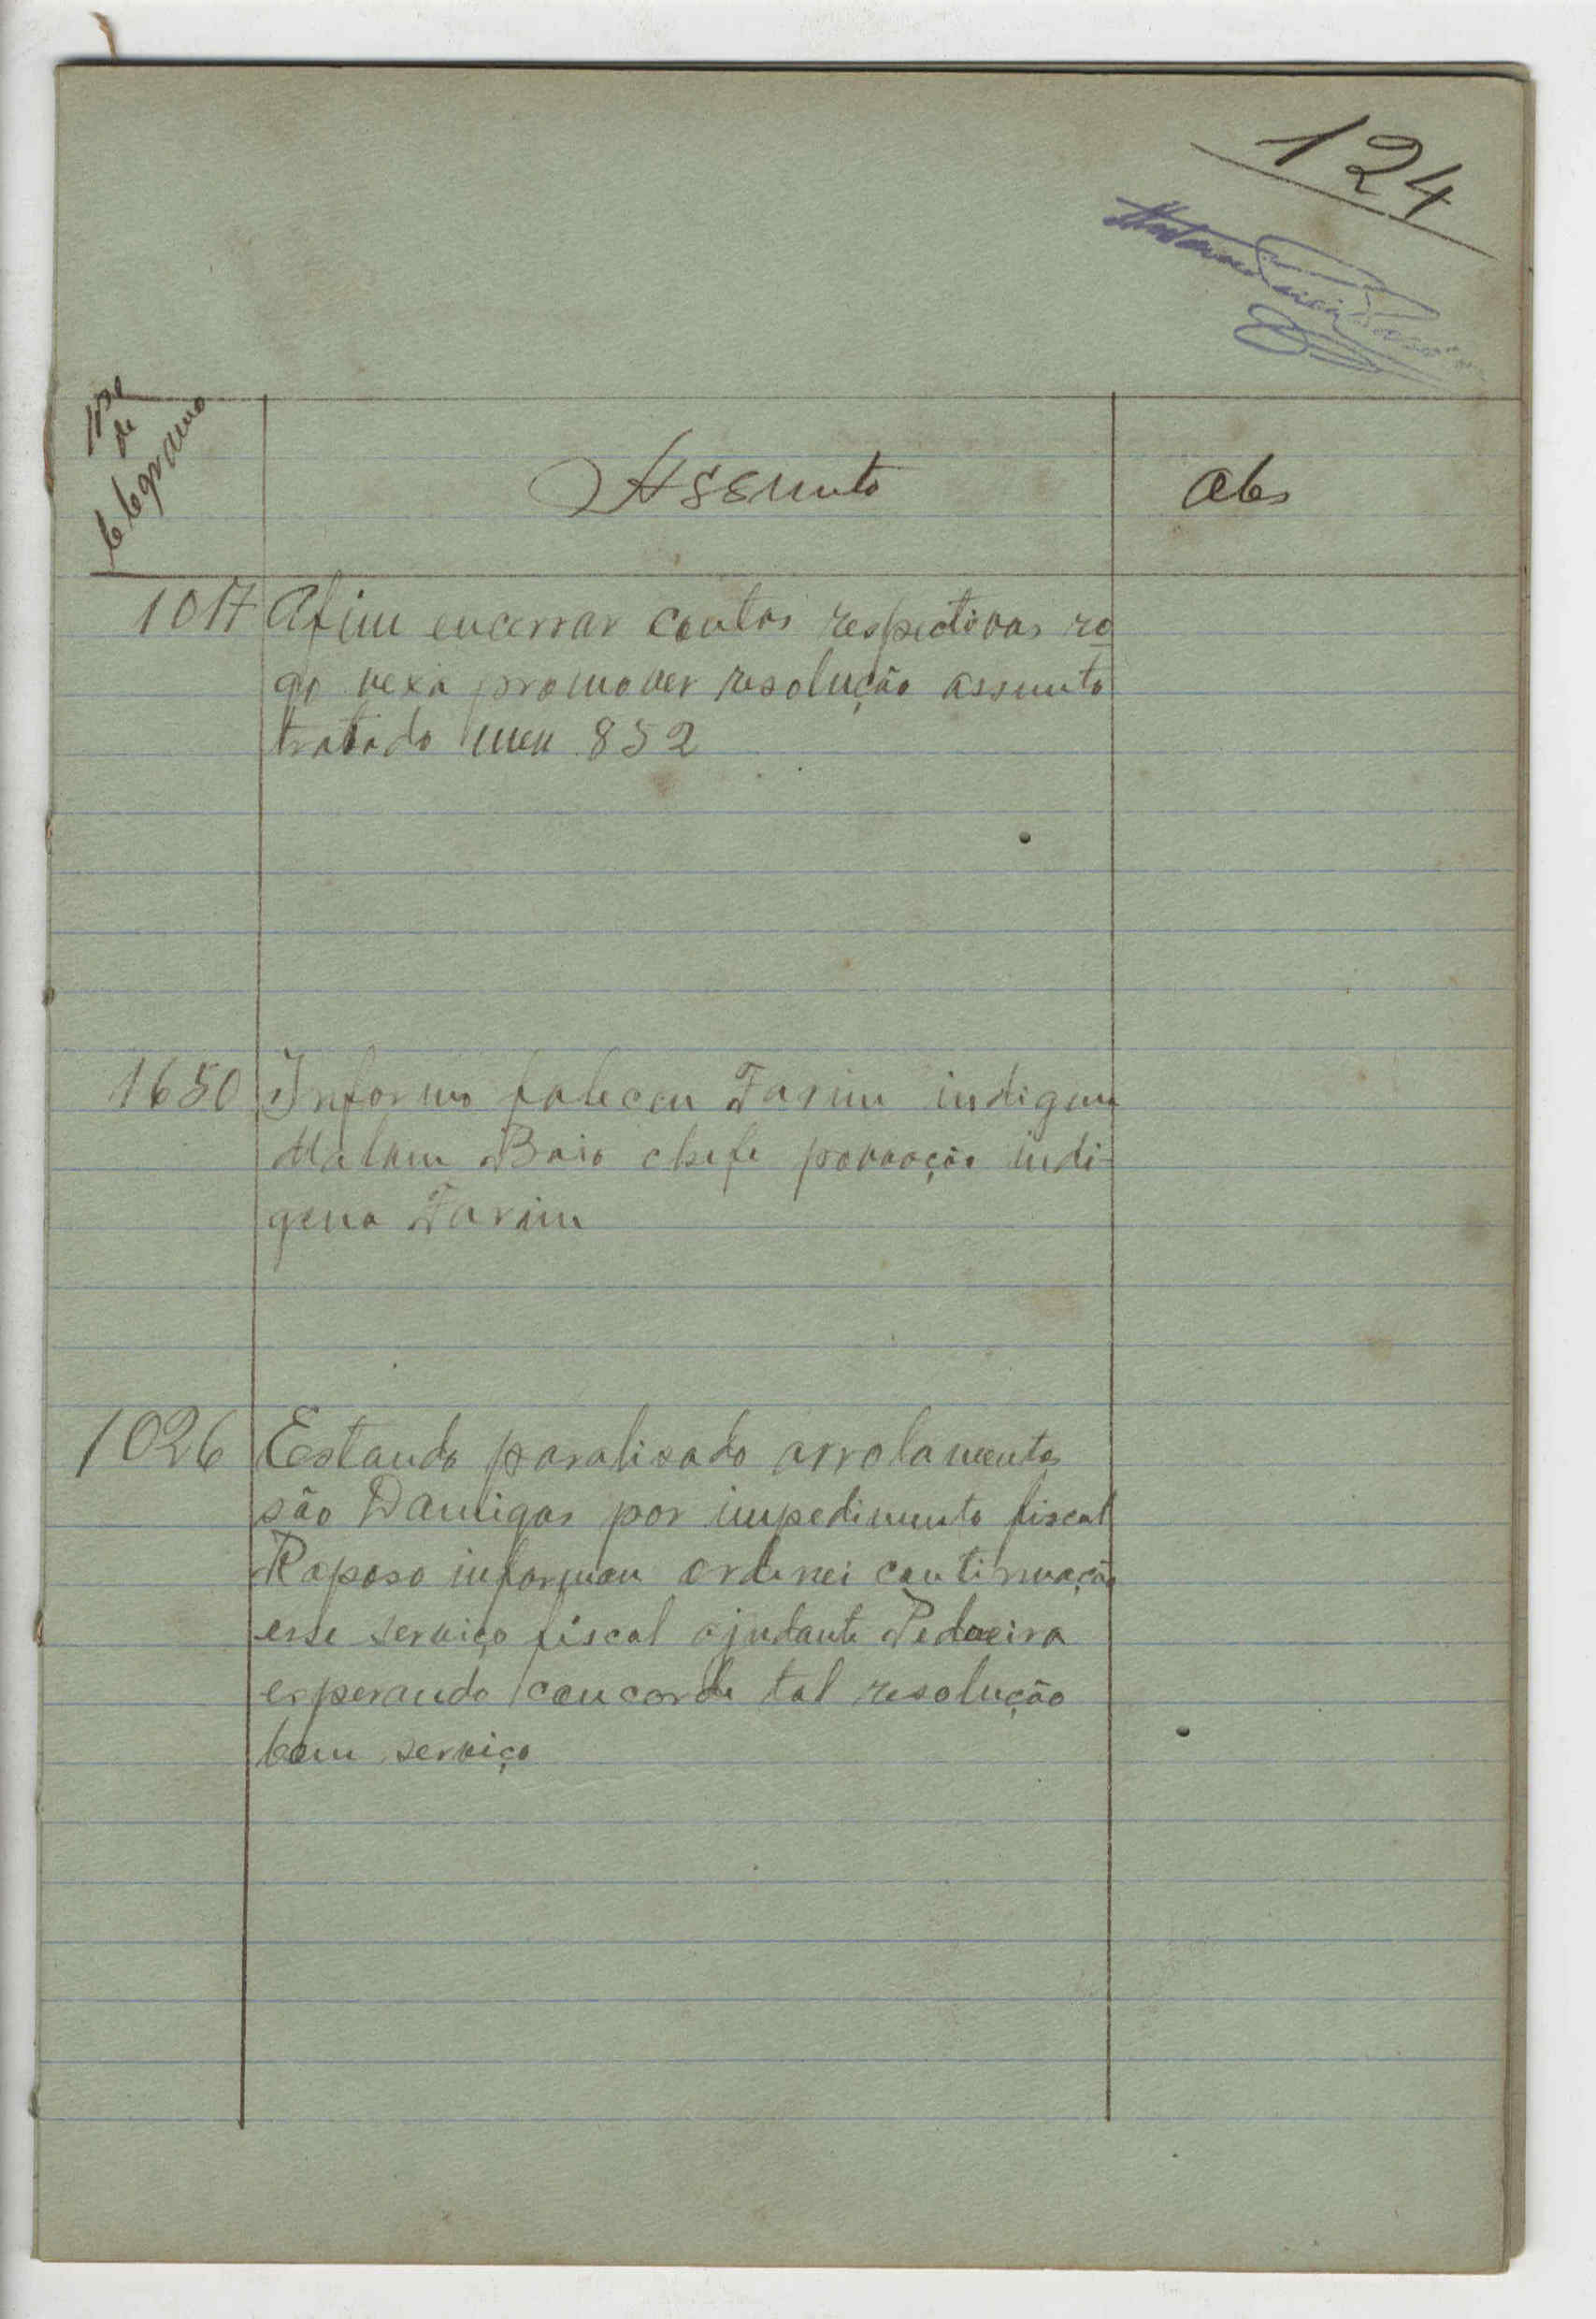 124
Nº
de
telegrama
Assunto
Obs
1017 Afim encerrar contas respectivas ro
go vexa promover resolução assunto
tratado meu 852
1650 Informo faleceu Farim indigena
Malam Baio chefe povoação indi-
gena Farim
1026 Estando paralisado arrolamento
são Damigos por impedimento fiscal
Raposo informou ordenei continuação
esse serviço fiscal ajudante Pedreira
esperando concorde tal resolução
bem serviço